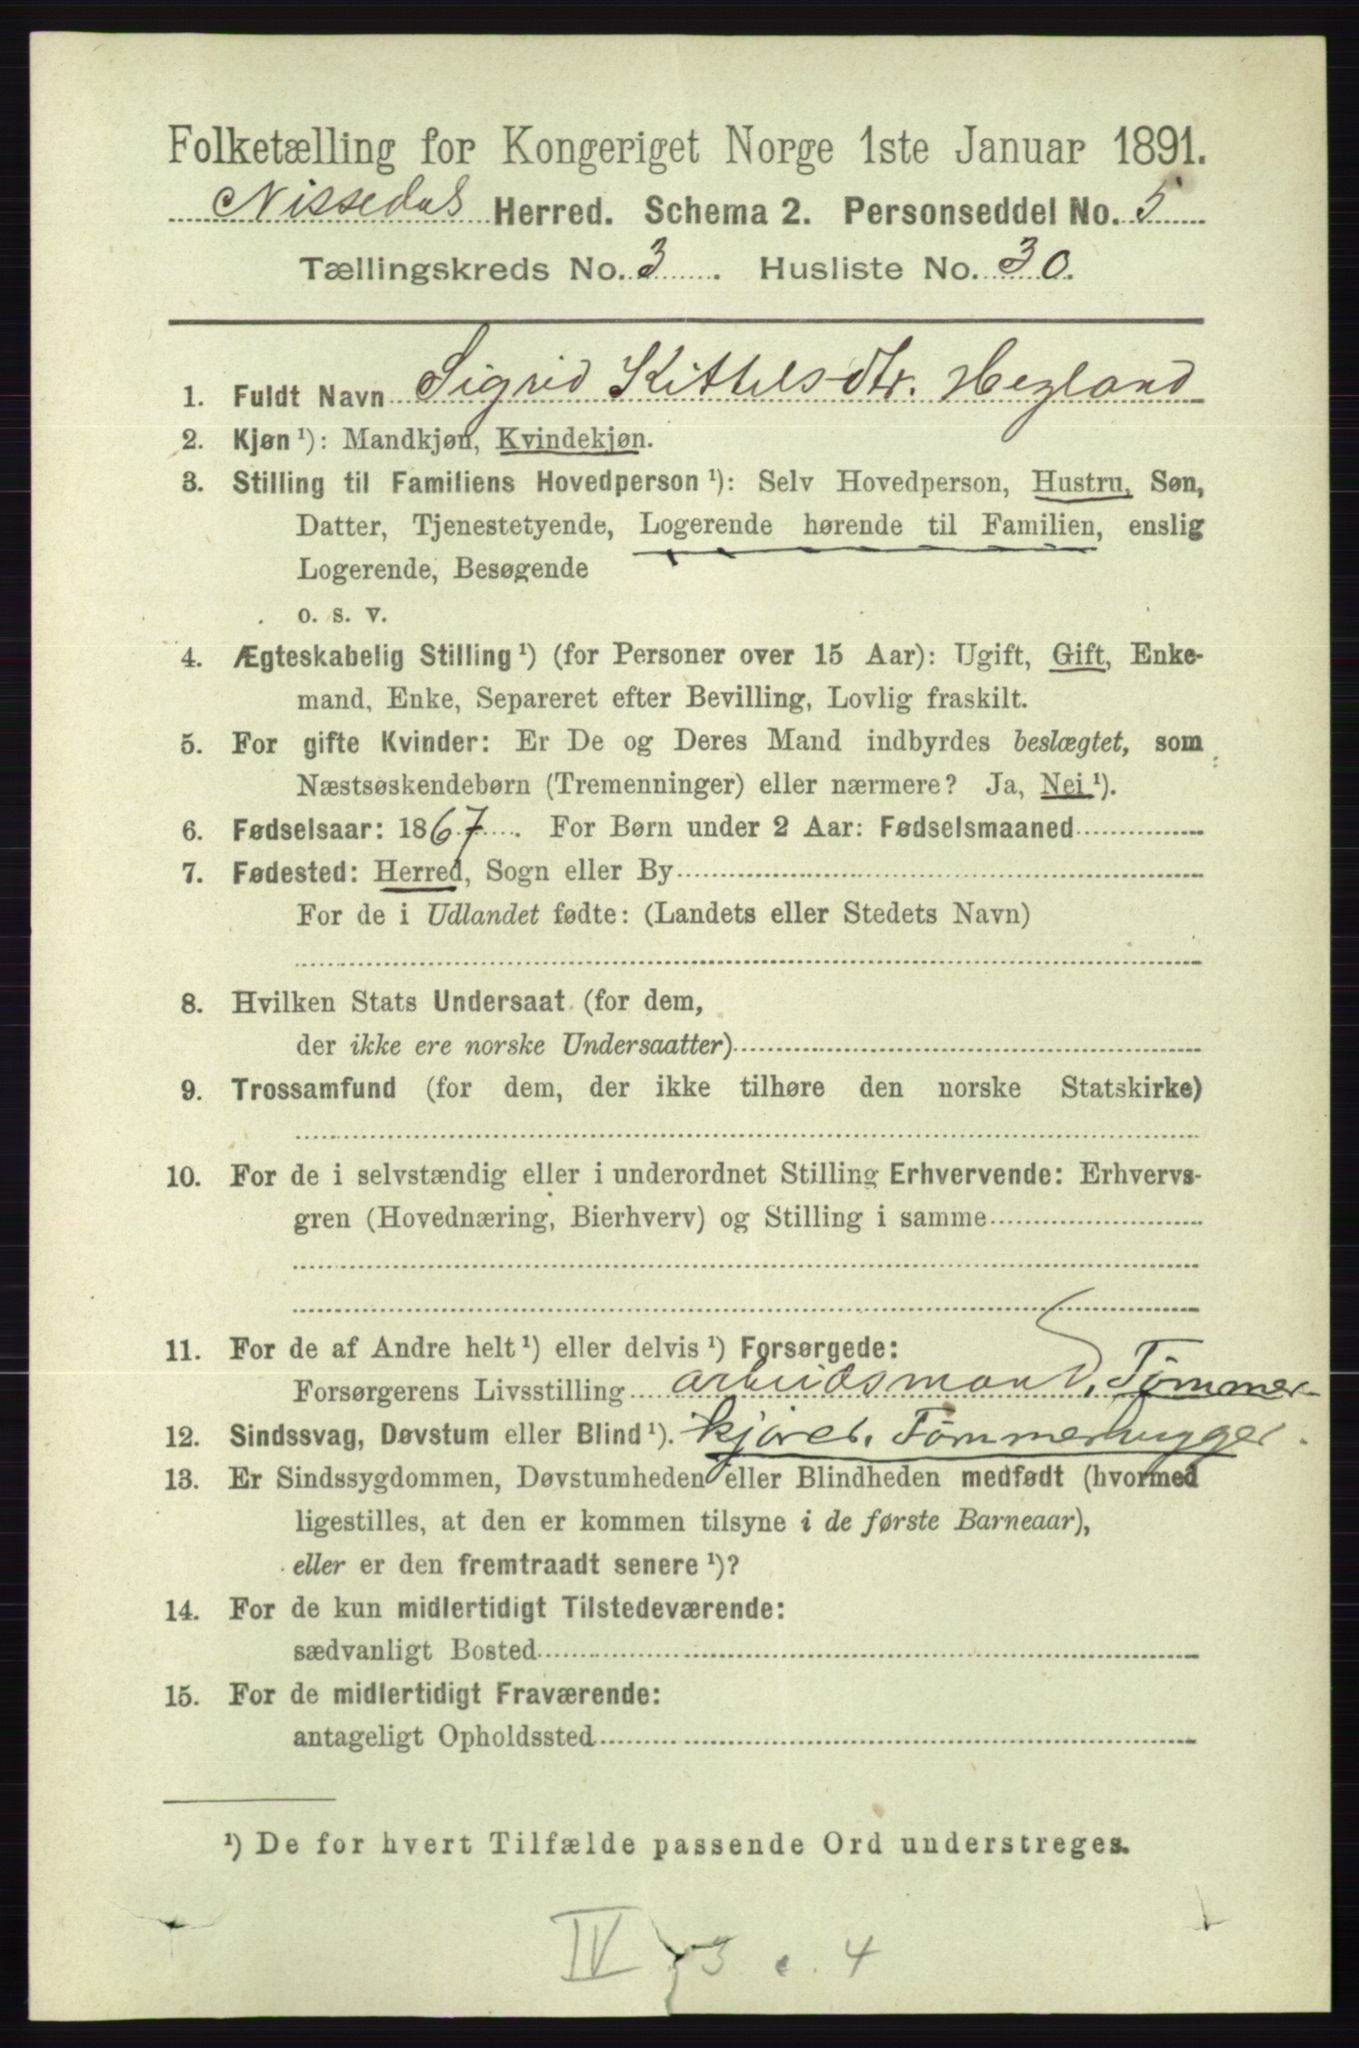 Folketælling for Kongeriget Norge 1ste Januar 1891.
Nissedal Herred. Schema 2. Personseddel No. 5
Tællingskreds No. 3. Husliste No. 30.
1. Fuldt Navn Sigrid Kittelsdtr. Hegland
2. Kjøn ¹): Mandkjøn, Kvindekjøn.
3. Stilling til Familiens Hovedperson ¹): Selv Hovedperson, Hustru, Søn,
Datter, Tjenestetyende, Logerende hørende til Familien, enslig
Logerende, Besøgende
o. s. v.
4. Ægteskabelig Stilling ¹) (for Personer over 15 Aar): Ugift, Gift, Enke-
mand, Enke, Separeret efter Bevilling, Lovlig fraskilt.
5. For gifte Kvinder: Er De og Deres Mand indbyrdes beslægtet, som
Næstsøskendebørn (Tremenninger) eller nærmere? Ja, Nei ¹).
6. Fødselsaar: 1867. For Børn under 2 Aar: Fødselsmaaned
7. Fødested: Herred, Sogn eller By
For de i Udlandet fødte: (Landets eller Stedets Navn)
8. Hvilken Stats Undersaat (for dem,
der ikke ere norske Undersaatter)
9. Trossamfund (for dem, der ikke tilhøre den norske Statskirke)
10. For de i selvstændig eller i underordnet Stilling Erhvervende: Erhvervs-
gren (Hovednæring, Bierhverv) og Stilling i samme
11. For de af Andre helt ¹) eller delvis ¹) Forsørgede:
Forsørgerens Livsstilling arbeidsmand, Tømmer-
12. Sindssvag, Døvstum eller Blind ¹). kjører, Tømmerhugger.
13. Er Sindssygdommen, Døvstumheden eller Blindheden medfødt (hvormed
ligestilles, at den er kommen tilsyne i de første Barneaar),
eller er den fremtraadt senere ¹)?
14. For de kun midlertidigt Tilstedeværende:
sædvanligt Bosted
15. For de midlertidigt Fraværende:
antageligt Opholdssted
¹) De for hvert Tilfælde passende Ord understreges.
IV 3 . 4